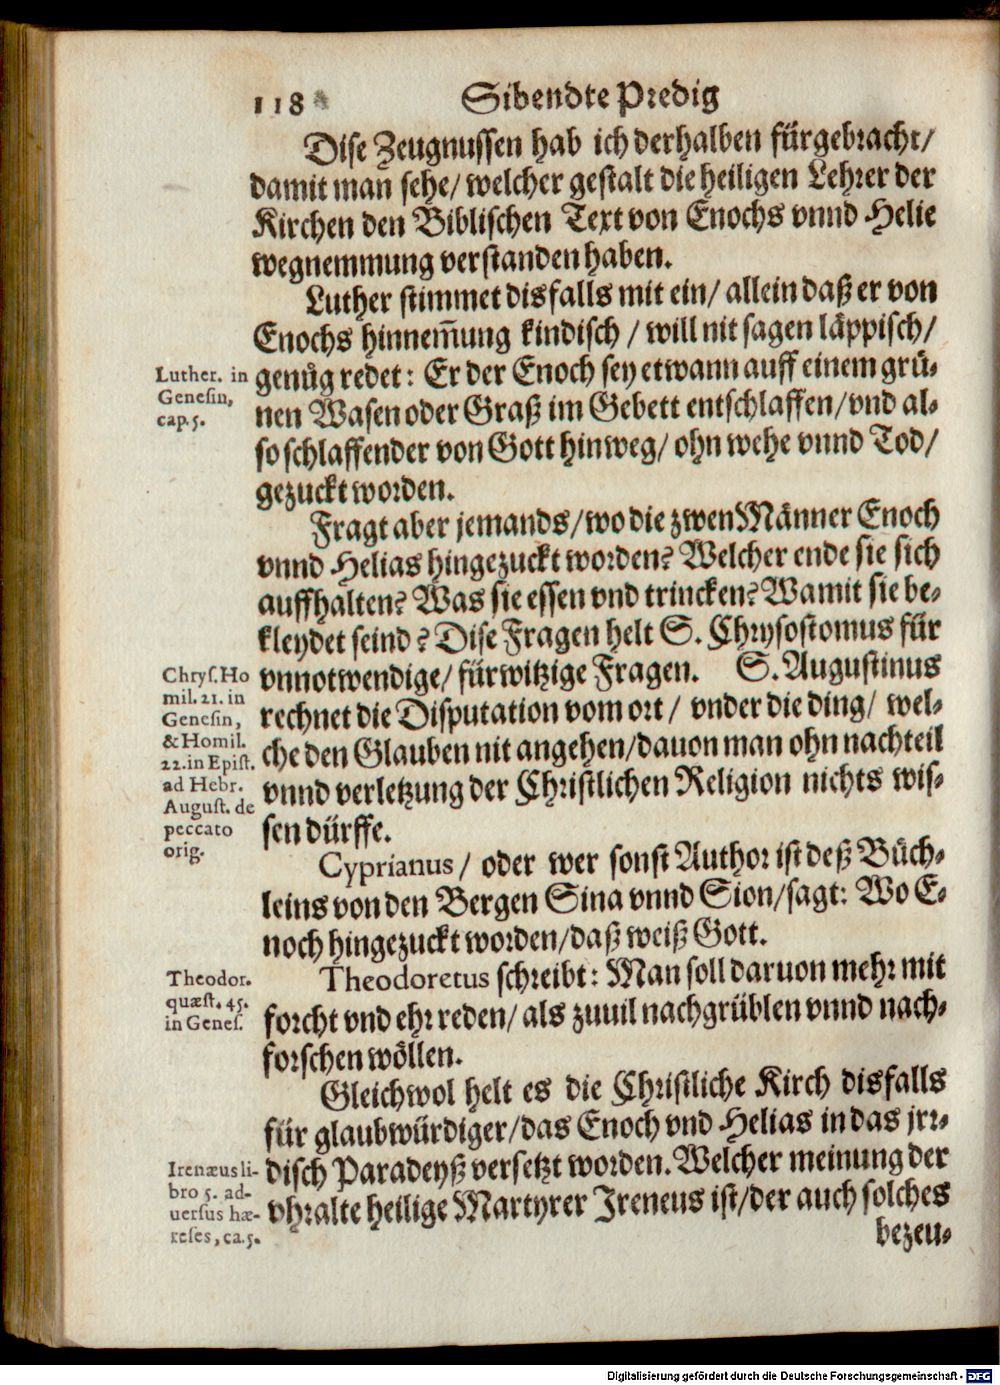 118 Sibendte Predig
Dise Zeugnussen hab ich derhalben fürgebracht/
damit man sehe/ welcher gestalt die heiligen Lehrer der
Kirchen den Biblischen Text von Enochs vnnd Helie
wegnemmung verstanden haben.
Luther stimmet disfalls mit ein/ allein daß er von
Enochs hinnem̃ung kindisch / will nit sagen läppisch/
Luther. in
Genesin,
cap. 5.
genůg redet: Er der Enoch sey etwann auff einem grü-
nen Wasen oder Graß im Gebett entschlaffen/ vnd al-
so schlaffender von Gott hinweg/ ohn wehe vnnd Tod/
gezuckt worden.
Fragt aber jemands/ wo die zwen Männer Enoch
vnnd Helias hingezuckt worden? Welcher ende sie sich
auffhalten? Was sie essen vnd trincken? Wamit sie be-
kleydet seind? Dise Fragen helt S. Chrysostomus für
Chrys. Ho
mil. 21. in
Genesin,
& Homil.
22. in Epist.
ad Hebr.
August. de
peccato
orig.
vnnotwendige/ fürwitzige Fragen. S. Augustinus
rechnet die Disputation vom ort / vnder die ding/ wel-
che den Glauben nit angehen/ dauon man ohn nachteil
vnnd verletzung der Christlichen Religion nichts wis-
sen dürffe.
Cyprianus/ oder wer sonst Author ist deß Büch-
leins von den Bergen Sina vnnd Sion/ sagt: Wo E-
noch hingezuckt worden/ daß weiß Gott.
Theodor.
quæst. 45.
in Genes.
Theodoretus schreibt: Man soll daruon mehr mit
forcht vnd ehr reden/ als zuuil nachgrüblen vnnd nach-
forschen wöllen.
Gleichwol helt es die Christliche Kirch disfalls
für glaubwürdiger/ das Enoch vnd Helias in das jrr-
Irenæus li-
bro 5. ad-
uersus hæ-
reses, ca. 5.
disch Paradeyß versetzt worden. Welcher meinung der
vhralte heilige Martyrer Ireneus ist/ der auch solches
bezeu-
Digitalisierung gefördert durch die Deutsche Forschungsgemeinschaft - DFG